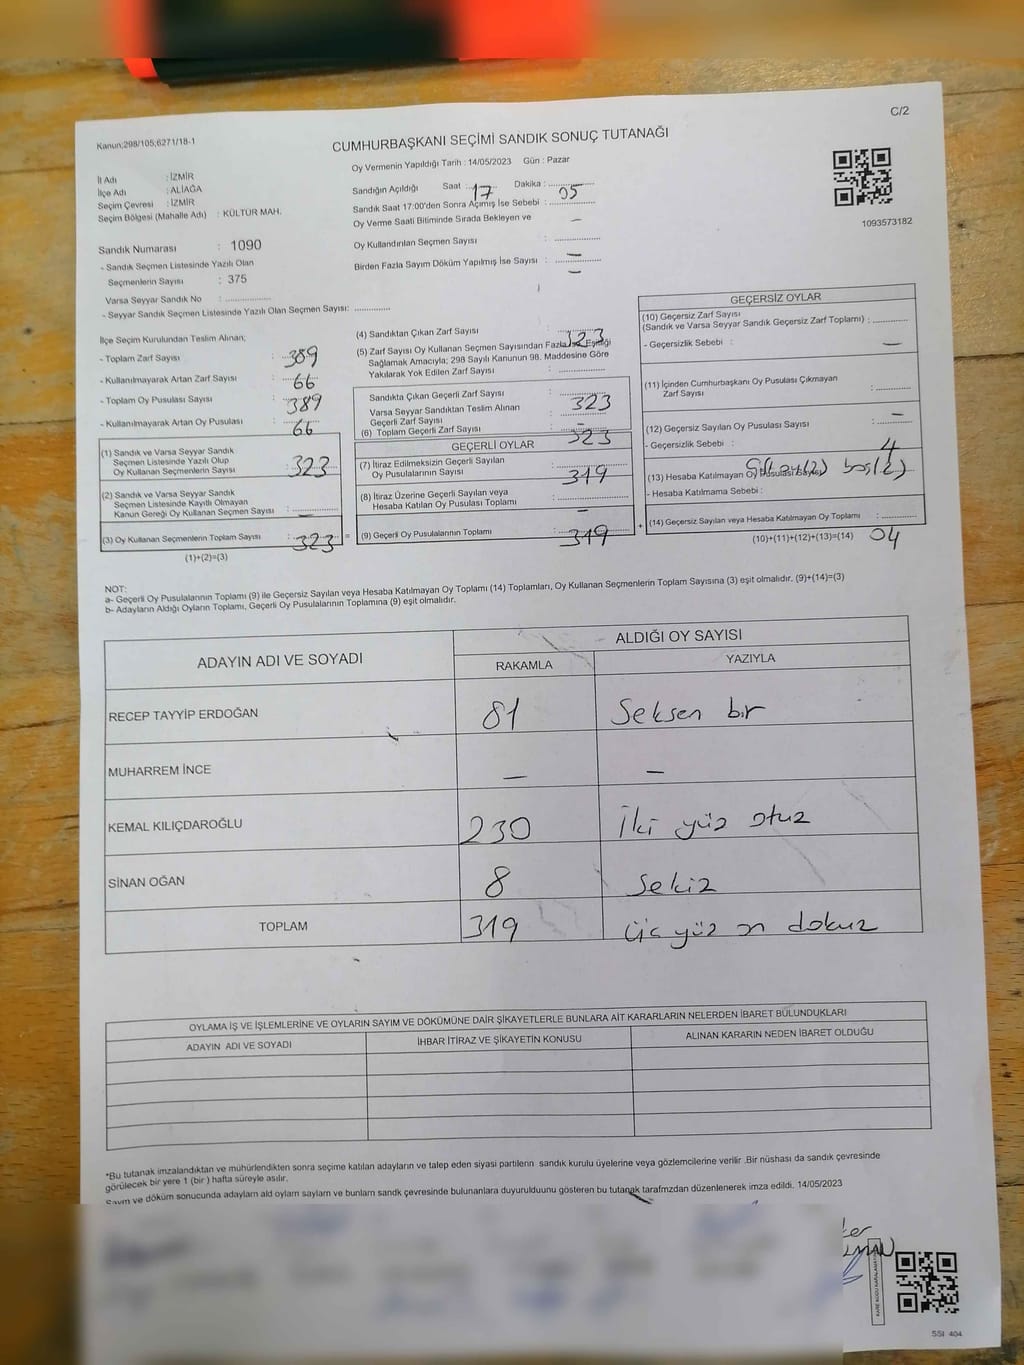 C/2
Kanun;298/105;6271/18-1
CUMHURBAŞKANI SEÇİMİ SANDIK SONUÇ TUTANAĞI
Oy Vermenin Yapıldığı Tarih : 14/05/2023 Gün : Pazar
İl Adı : İZMİR
İlçe Adı : ALİAĞA
Seçim Çevresi : İZMİR
Seçim Bölgesi (Mahalle Adı) : KÜLTÜR MAH.
Sandığın Açıldığı Saat : 17 Dakika : 05
Sandık Saat 17:00'den Sonra Açımış İse Sebebi :
Oy Verme Saati Bitiminde Sırada Bekleyen ve
Oy Kullandırılan Seçmen Sayısı : —
Birden Fazla Sayım Döküm Yapılmış İse Sayısı : —
1093573182
Sandık Numarası : 1090
- Sandık Seçmen Listesinde Yazılı Olan
Seçmenlerin Sayısı : 375
Varsa Seyyar Sandık No :
- Seyyar Sandık Seçmen Listesinde Yazılı Olan Seçmen Sayısı:
İlçe Seçim Kurulundan Teslim Alınan;
- Toplam Zarf Sayısı : 389
- Kullanılmayarak Artan Zarf Sayısı : 66
- Toplam Oy Pusulası Sayısı : 389
- Kullanılmayarak Artan Oy Pusulası : 66
(1) Sandık ve Varsa Seyyar Sandık
Seçmen Listesinde Yazılı Olup
Oy Kullanan Seçmenlerin Sayısı : 323
(2) Sandık ve Varsa Seyyar Sandık
Seçmen Listesinde Kayıtlı Olmayan
Kanun Gereği Oy Kullanan Seçmen Sayısı : —
(3) Oy Kullanan Seçmenlerin Toplam Sayısı : 323 =
(1)+(2)=(3)
(4) Sandıktan Çıkan Zarf Sayısı : 323
(5) Zarf Sayısı Oy Kullanan Seçmen Sayısından Fazla ise Eşitliği
Sağlamak Amacıyla; 298 Sayılı Kanunun 98. Maddesine Göre
Yakılarak Yok Edilen Zarf Sayısı :
Sandıkta Çıkan Geçerli Zarf Sayısı : 323
Varsa Seyyar Sandıktan Teslim Alınan
Geçerli Zarf Sayısı : —
(6) Toplam Geçerli Zarf Sayısı : 323
GEÇERLİ OYLAR
(7) İtiraz Edilmeksizin Geçerli Sayılan
Oy Pusulalarının Sayısı : 319
(8) İtiraz Üzerine Geçerli Sayılan veya
Hesaba Katılan Oy Pusulası Toplamı : —
(9) Geçerli Oy Pusulalarının Toplamı : 319 +
GEÇERSİZ OYLAR
(10) Geçersiz Zarf Sayısı
(Sandık ve Varsa Seyyar Sandık Geçersiz Zarf Toplamı) :
- Geçersizlik Sebebi : —
(11) İçinden Cumhurbaşkanı Oy Pusulası Çıkmayan
Zarf Sayısı : —
(12) Geçersiz Sayılan Oy Pusulası Sayısı : 4
- Geçersizlik Sebebi : boş(2)
(13) Hesaba Katılmayan Oy Pusulası Sayısı
- Hesaba Katılmama Sebebi :
(14) Geçersiz Sayılan veya Hesaba Katılmayan Oy Toplamı : 04
(10)+(11)+(12)+(13)=(14)
NOT:
a- Geçerli Oy Pusulalarının Toplamı (9) ile Geçersiz Sayılan veya Hesaba Katılmayan Oy Toplamı (14) Toplamları, Oy Kullanan Seçmenlerin Toplam Sayısına (3) eşit olmalıdır. (9)+(14)=(3)
b- Adayların Aldığı Oyların Toplamı, Geçerli Oy Pusulalarının Toplamına (9) eşit olmalıdır.
ADAYIN ADI VE SOYADI ALDIĞI OY SAYISI
RAKAMLA YAZIYLA
RECEP TAYYİP ERDOĞAN 81 Seksen bir
MUHARREM İNCE — —
KEMAL KILIÇDAROĞLU 230 İki yüz otuz
SİNAN OĞAN 8 Sekiz
TOPLAM 319 Üç yüz on dokuz
OYLAMA İŞ VE İŞLEMLERİNE VE OYLARIN SAYIM VE DÖKÜMÜNE DAİR ŞİKAYETLERLE BUNLARA AİT KARARLARIN NELERDEN İBARET BULUNDUKLARI
ADAYIN ADI VE SOYADI İHBAR İTİRAZ VE ŞİKAYETİN KONUSU ALINAN KARARIN NEDEN İBARET OLDUĞU
*Bu tutanak imzalandıktan ve mühürlendikten sonra seçime katılan adayların ve talep eden siyasi partilerin sandık kurulu üyelerine veya gözlemcilerine verilir .Bir nüshası da sandık çevresinde
görülecek bir yere 1 (bir ) hafta süreyle asılır.
Sayım ve döküm sonucunda adayların ald oyların sayların ve bunların sandk çevresinde bulunanlara duyurulduunu gösteren bu tutanak tarafmzdan düzenlenerek imza edildi. 14/05/2023
SSI 404